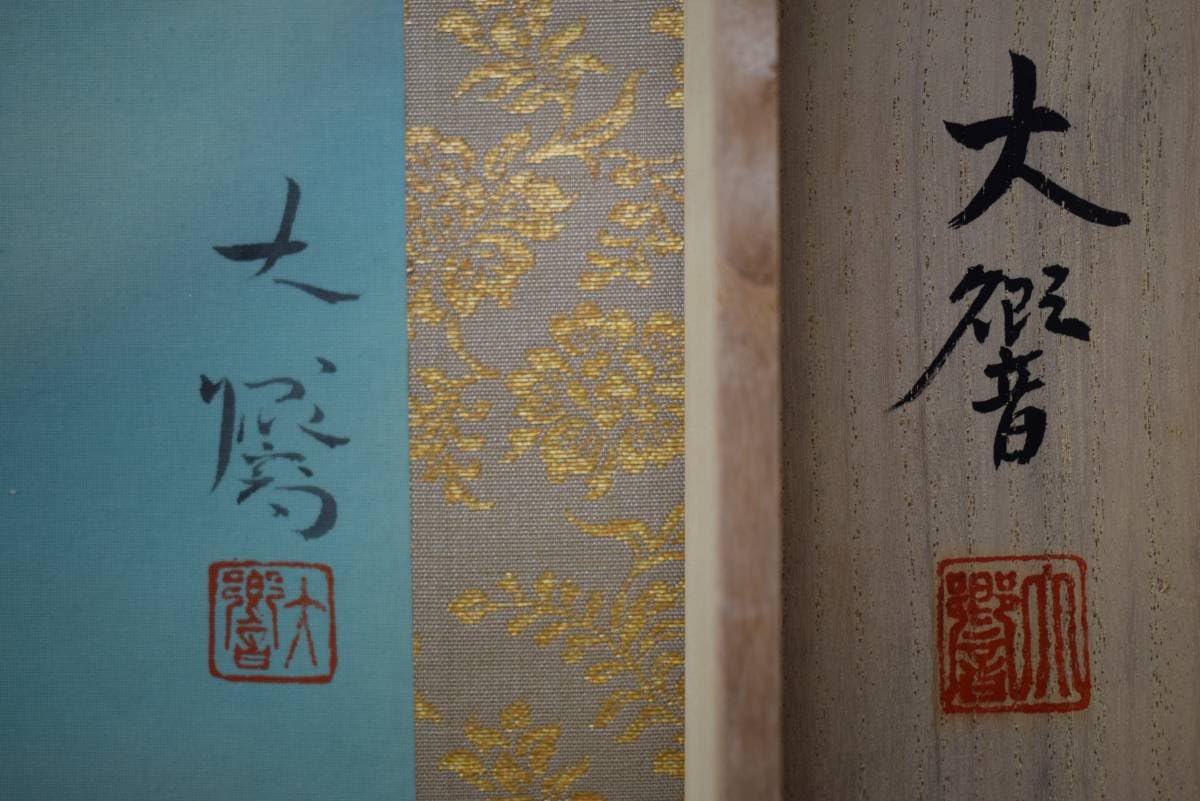 大響
大響
大響
大響